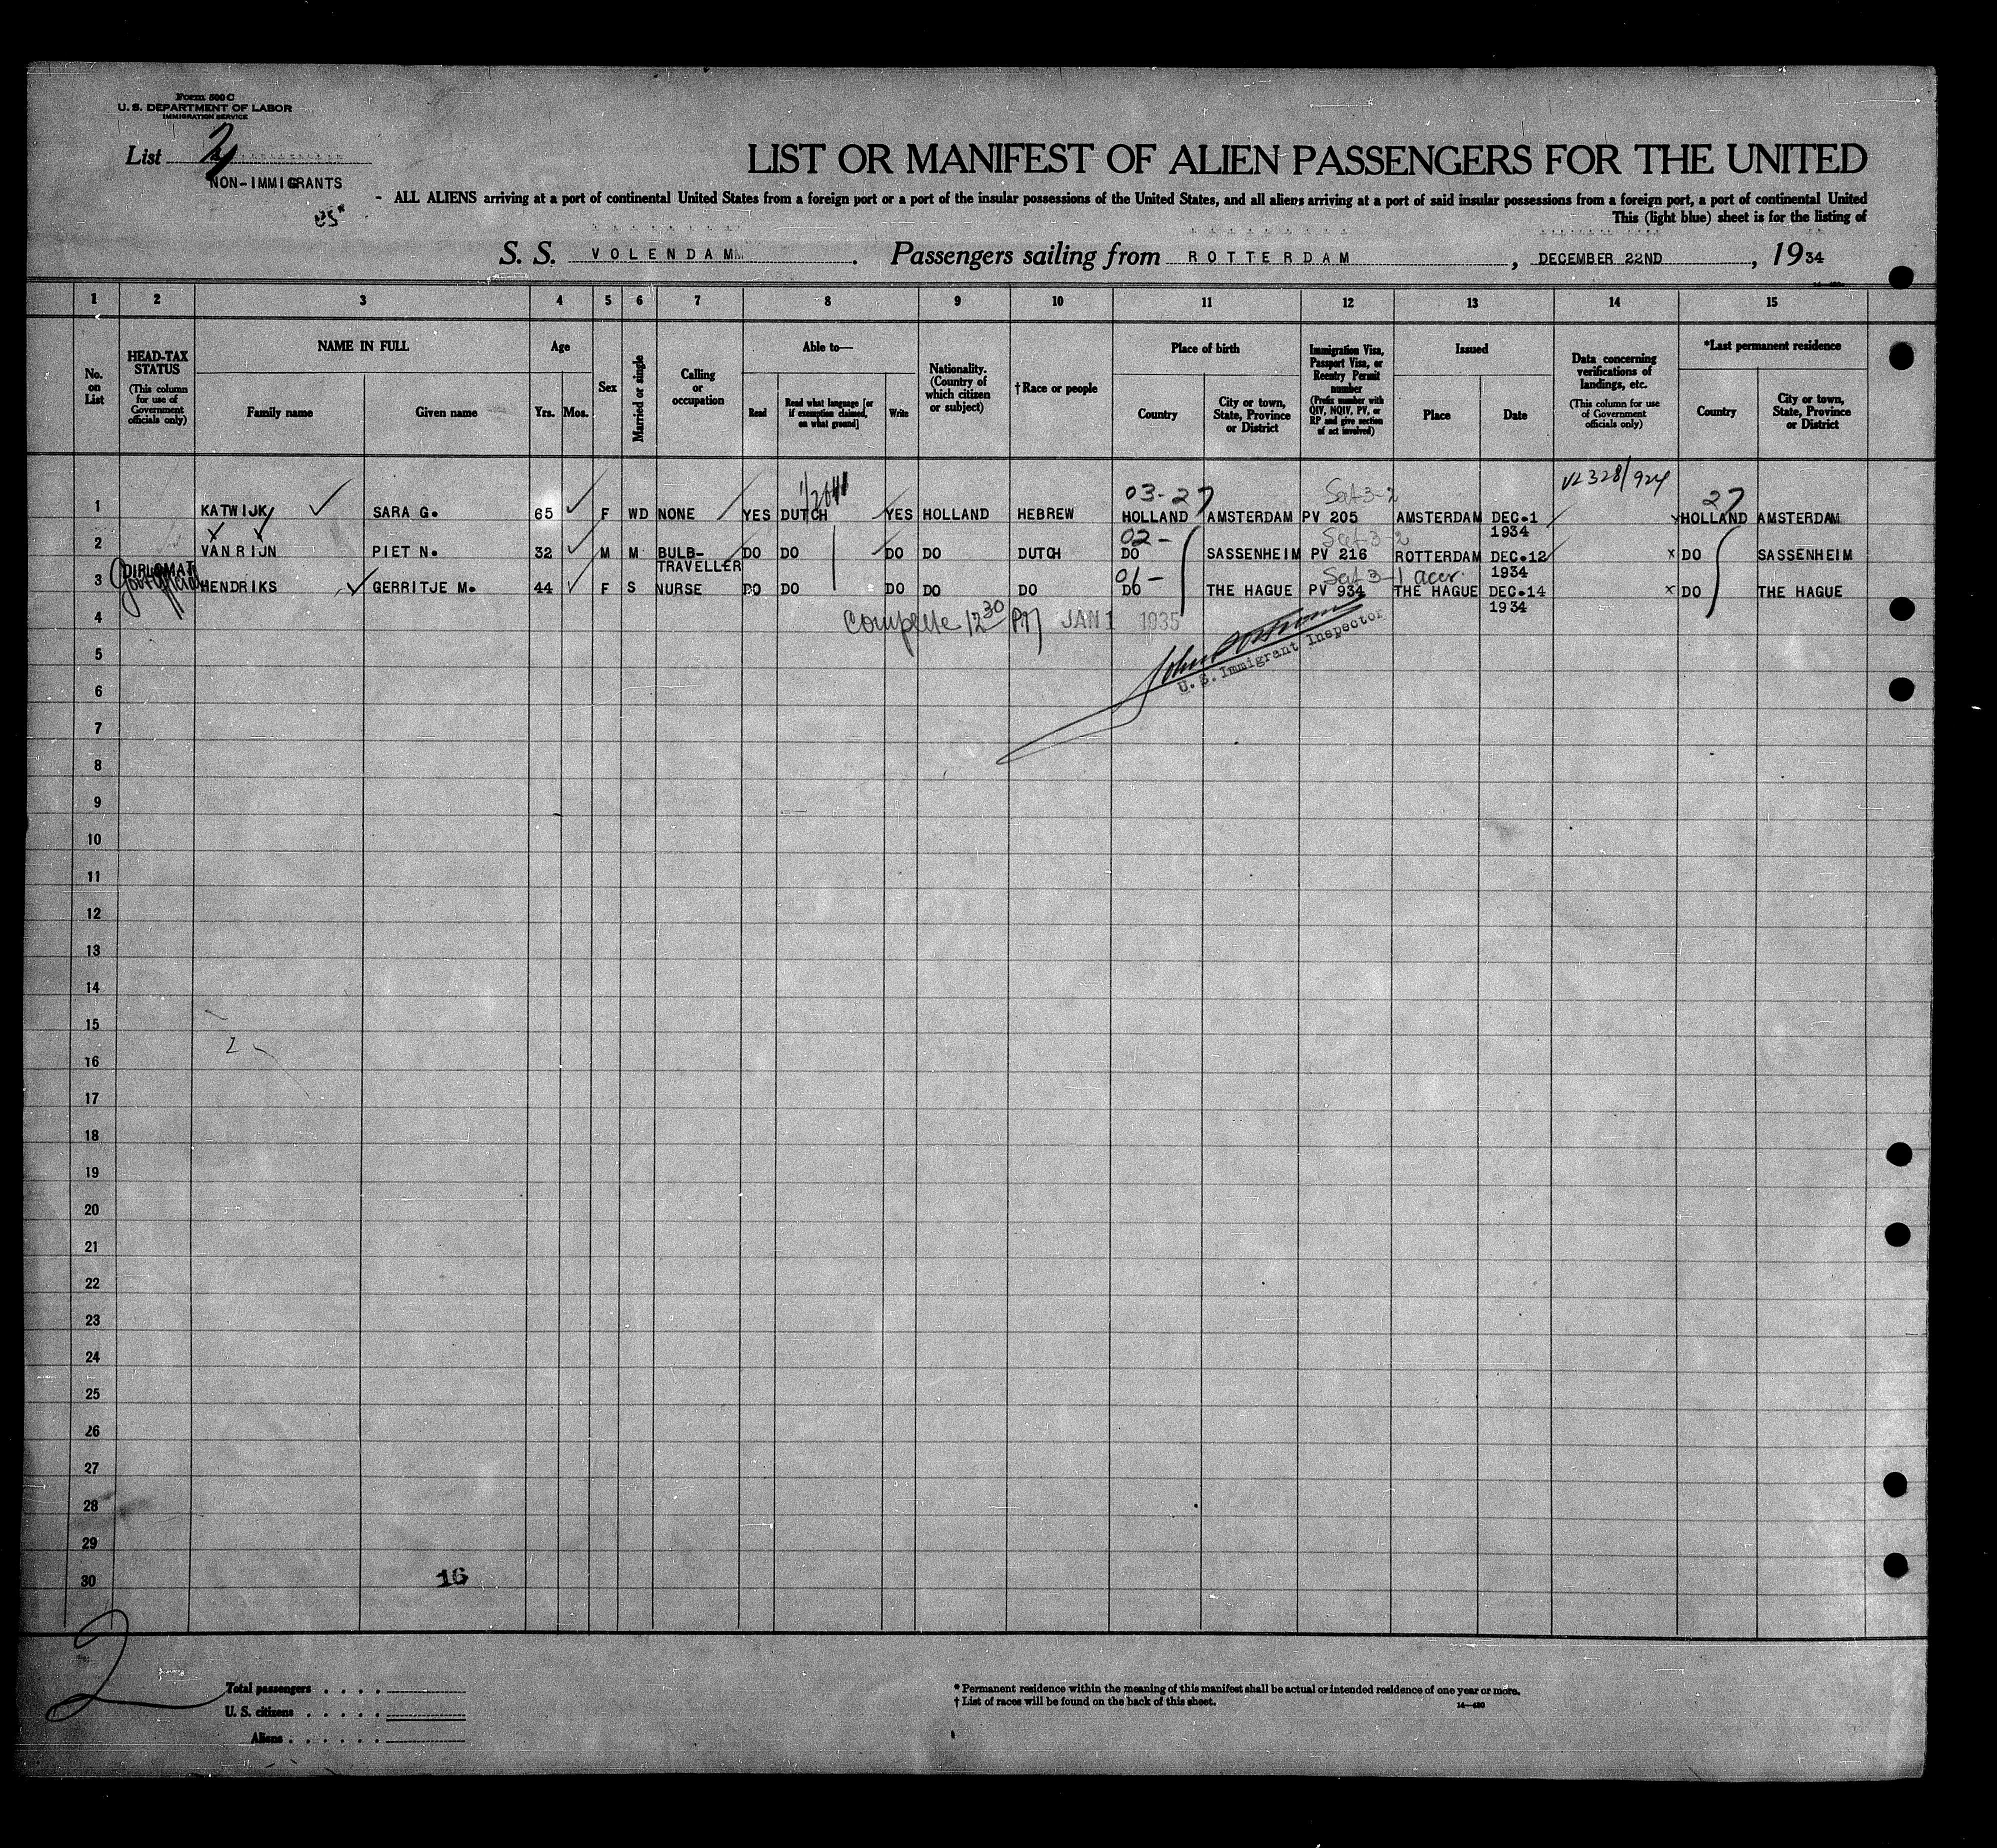 Form 500 C
U. S. DEPARTMENT OF LABOR
IMMIGRATION SERVICE
List 2
NON-IMMIGRANTS
LIST OR MANIFEST OF ALIEN PASSENGERS FOR THE UNITED
- ALL ALIENS arriving at a port of continental United States from a foreign port or a port of the insular possessions of the United States, and all aliens arriving at a port of said insular possessions from a foreign port, a port of continental United
This (light blue) sheet is for the listing of
S. S. VOLENDAM. Passengers sailing from ROTTERDAM, DECEMBER 22ND, 1934
1 2 3 4 5 6 7 8 9 10 11 12 13 14 15
No. on List
HEAD-TAX STATUS (This column for use of Government officials only)
NAME IN FULL
Family name Given name
Age
Yrs. Mos.
Sex
Married or single
Calling or occupation
Able to—
Read Read what language [or if exemption claimed, on what ground] Write
Nationality. (Country of which citizen or subject)
† Race or people
Place of birth
Country City or town, State, Province or District
Immigration Visa, Passport Visa, or Reentry Permit number (Prefix number with QIV, NQIV, PV, or RP and give section of act involved)
Issued
Place Date
Data concerning verifications of landings, etc. (This column for use of Government officials only)
*Last permanent residence
Country City or town, State, Province or District
03-27 Sec 3-2 VL 328/924 27
1 KATWIJK SARA G. 65 F WD NONE YES DUTCH YES HOLLAND HEBREW HOLLAND AMSTERDAM PV 205 AMSTERDAM DEC.1 1934 HOLLAND AMSTERDAM
02- Sec 3-2
2 VAN RIJN PIET N. 32 M M BULB-TRAVELLER DO DO DO DO DUTCH DO SASSENHEIM PV 216 ROTTERDAM DEC.12 1934 x DO SASSENHEIM
DIPLOMAT Govt Official
01- Sec 3-1 accr.
3 HENDRIKS GERRITJE M. 44 F S NURSE DO DO DO DO DO DO THE HAGUE PV 934 THE HAGUE DEC.14 1934 x DO THE HAGUE
4 Complete 12 30 PM JAN 1 1935
U. S. Immigrant Inspector
5
6
7
8
9
10
11
12
13
14
15
16
17
18
19
20
21
22
23
24
25
26
27
28
29
30
16
2
Total passengers . . . .
U. S. citizens . . . . .
Aliens . . . . . .
* Permanent residence within the meaning of this manifest shall be actual or intended residence of one year or more.
† List of races will be found on the back of this sheet.
14—430